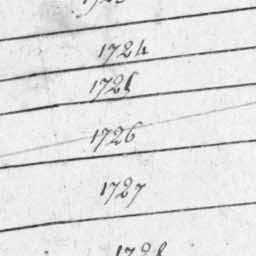 1724
1725
1726
1727
1728